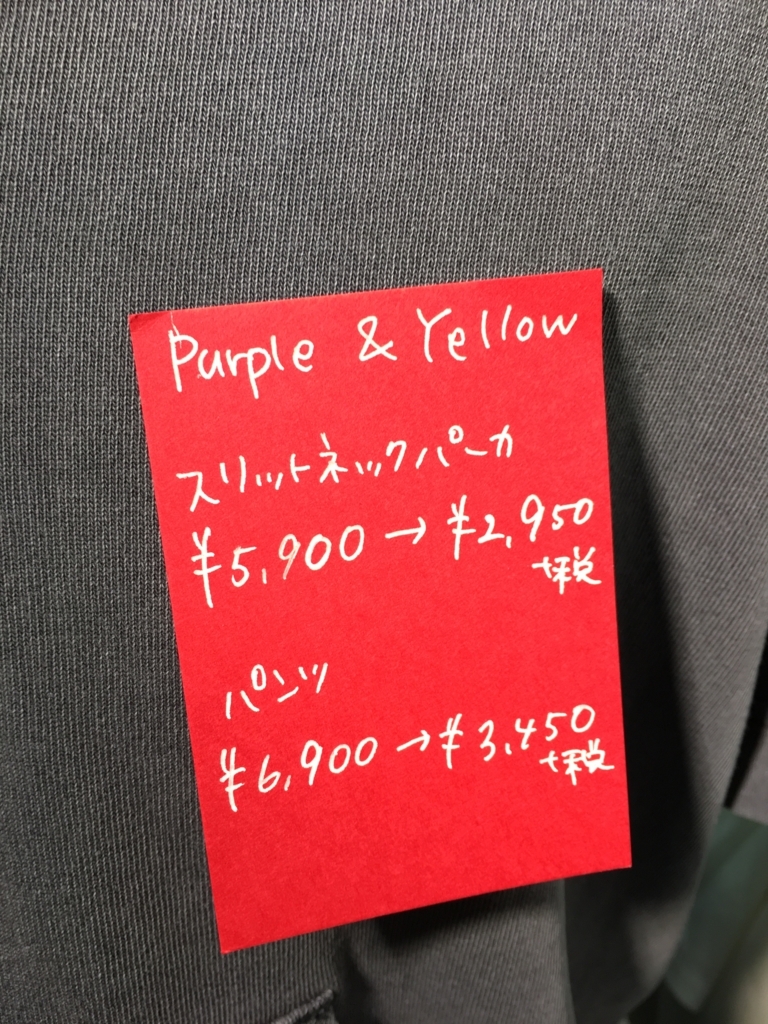 Purple & Yellow
スリットネックパーカ
¥5,900→¥2,950
+税
パンツ
¥6,900→¥3,450
+税